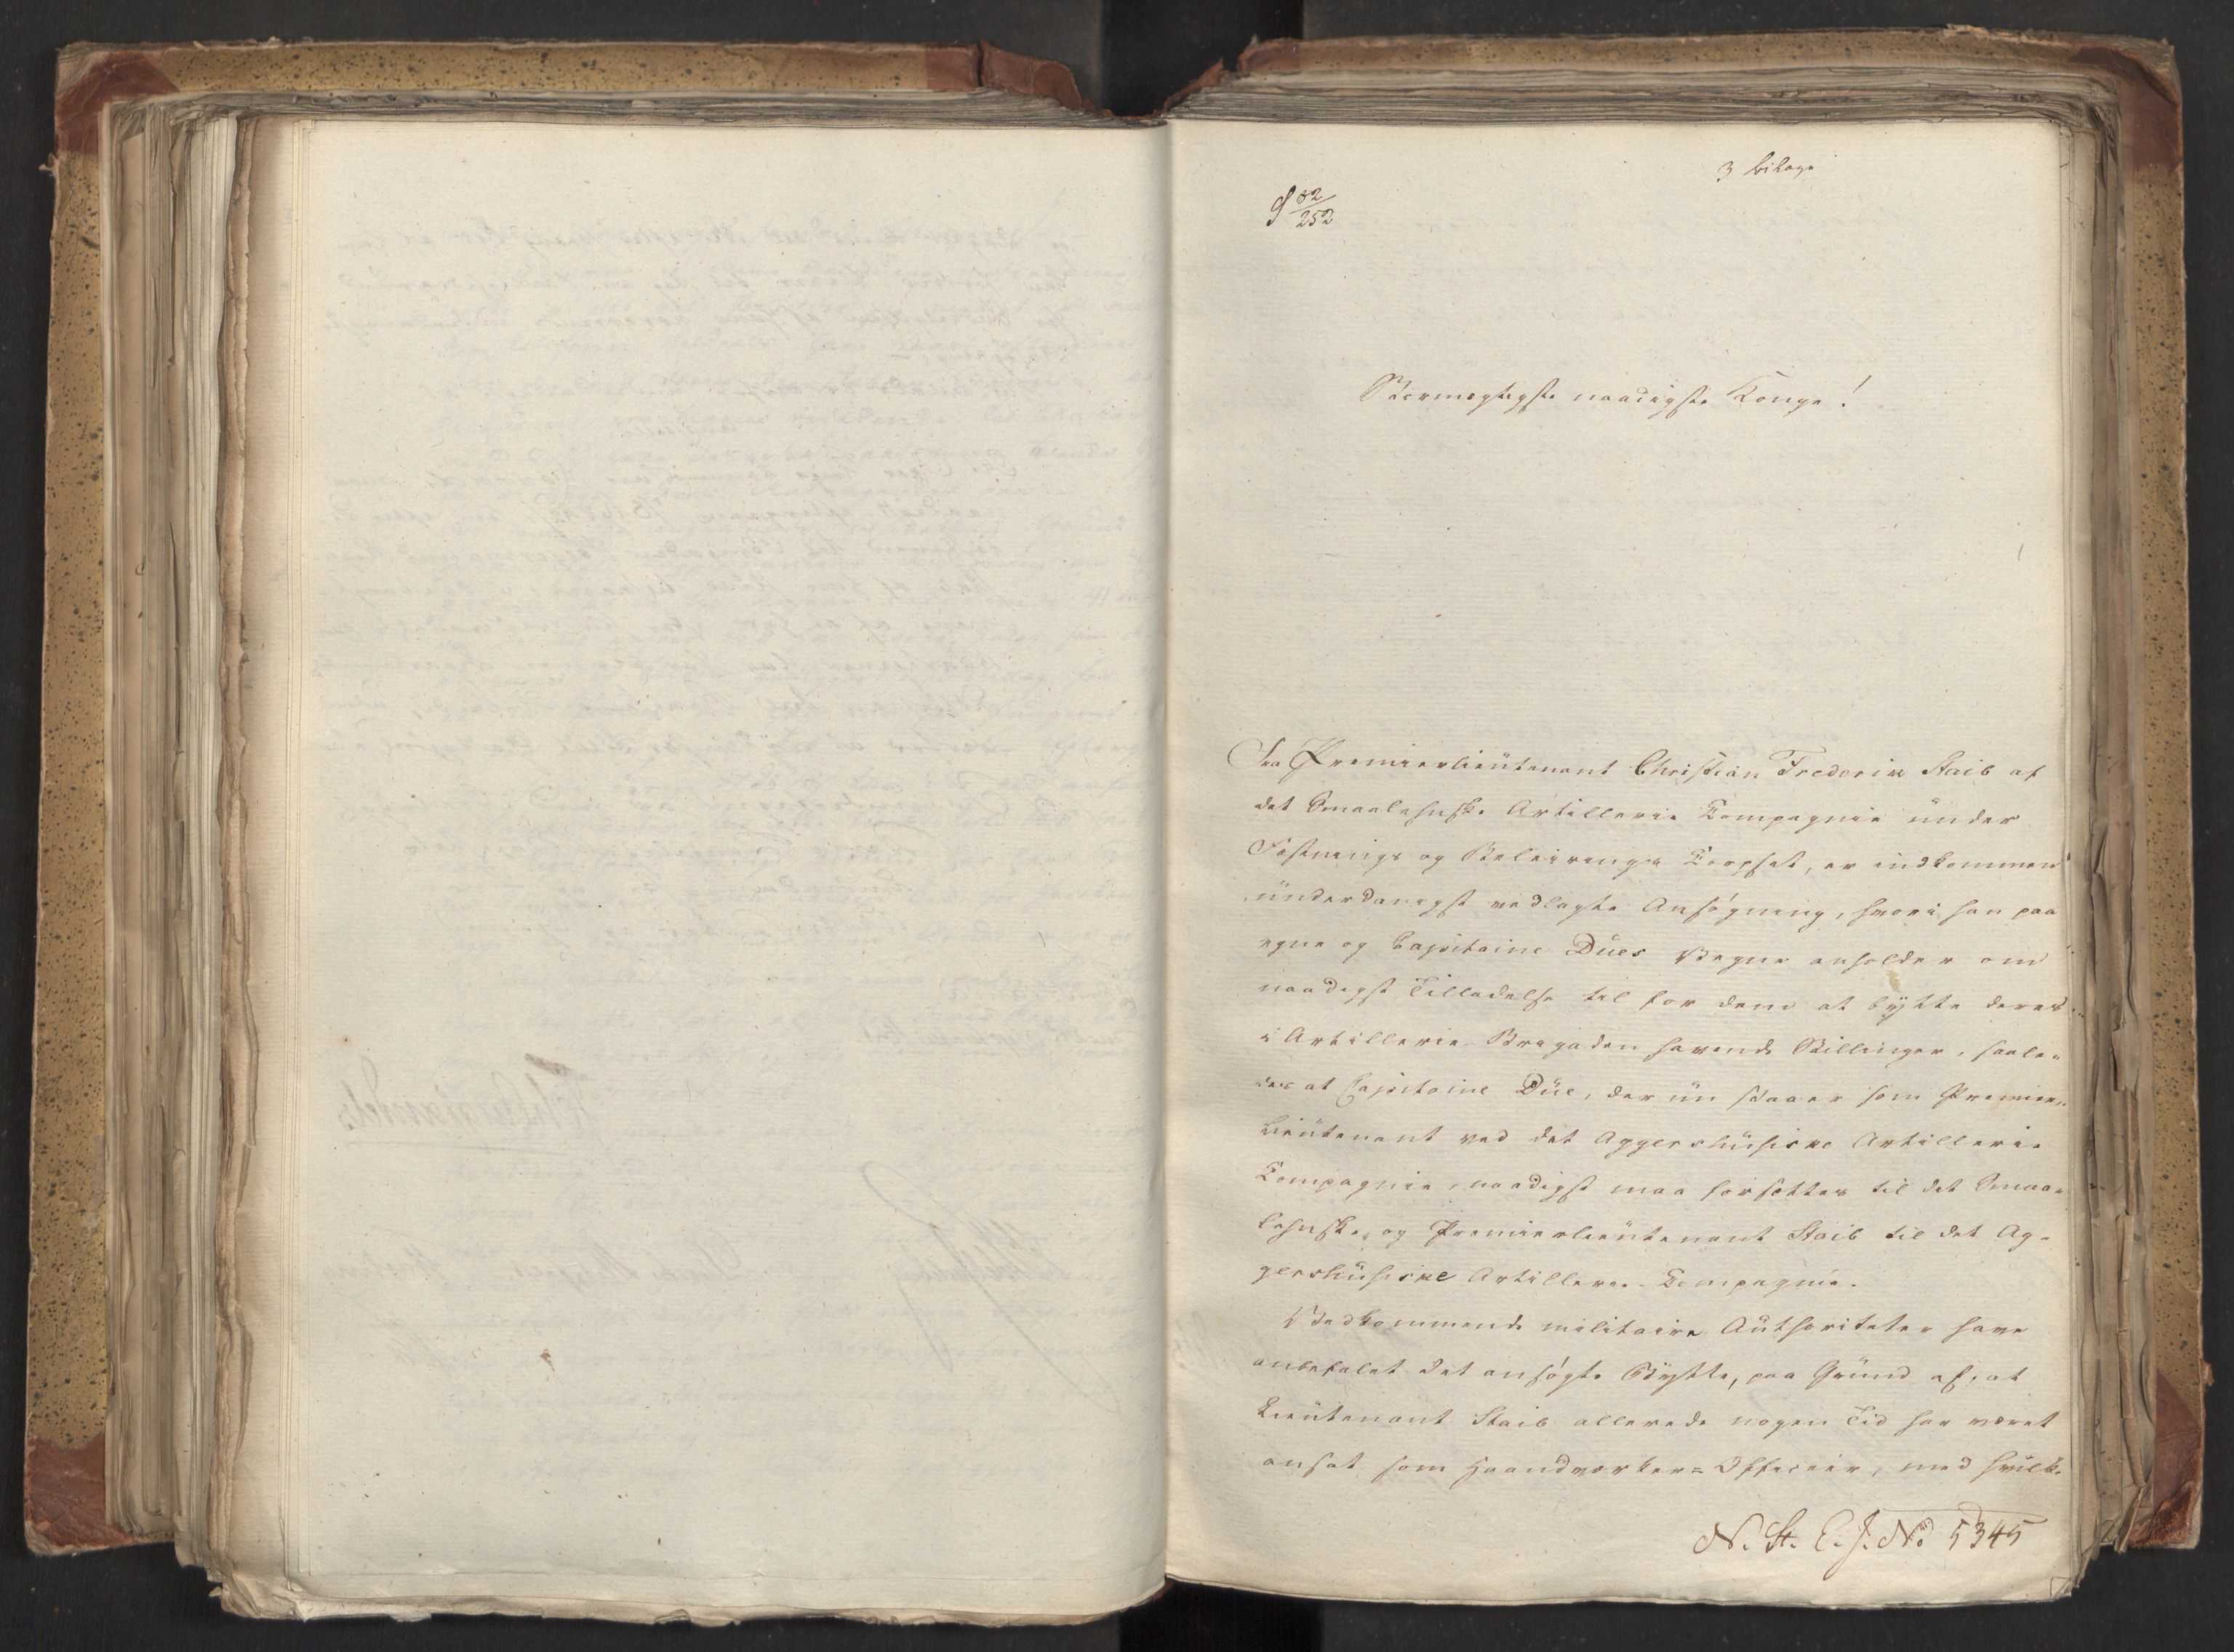 3 bilage
S 82/252
Stormægtigste naadigste Konge!
Fra Premierlieutenant Christian Frederik Staib af
det Smaalehnske Artillerie Compagnie under
Fæstnings og Beleirings Corpset, er indkommen
underdanigst vedlagte Ansøgning, hvori han paa
egne og Capitaine Dues Vegne anholder om
naadigst Tilladelse til for dem at bytte deres
i Artillerie-Brigaden havende Stillinger, saale-
des at Capitaine Due, der nu staaer som Premier-
lieutenant ved det Aggershusiske Artillerie
Compagnie, naadigst maa forsættes til det Smaa-
lehnske, og Premierlieutenant Staib til det Ag-
gershusiske Artillerie-Compagnie.
Vedkommende militaire Authoriteter have
anbefalet det ansøgte Bytte, paa Grund af, at
Lieutenant Staib allerede nogen Tid har været
ansat som Haandværker-Officeer, med hvilke
N. St. E. J. No 5345